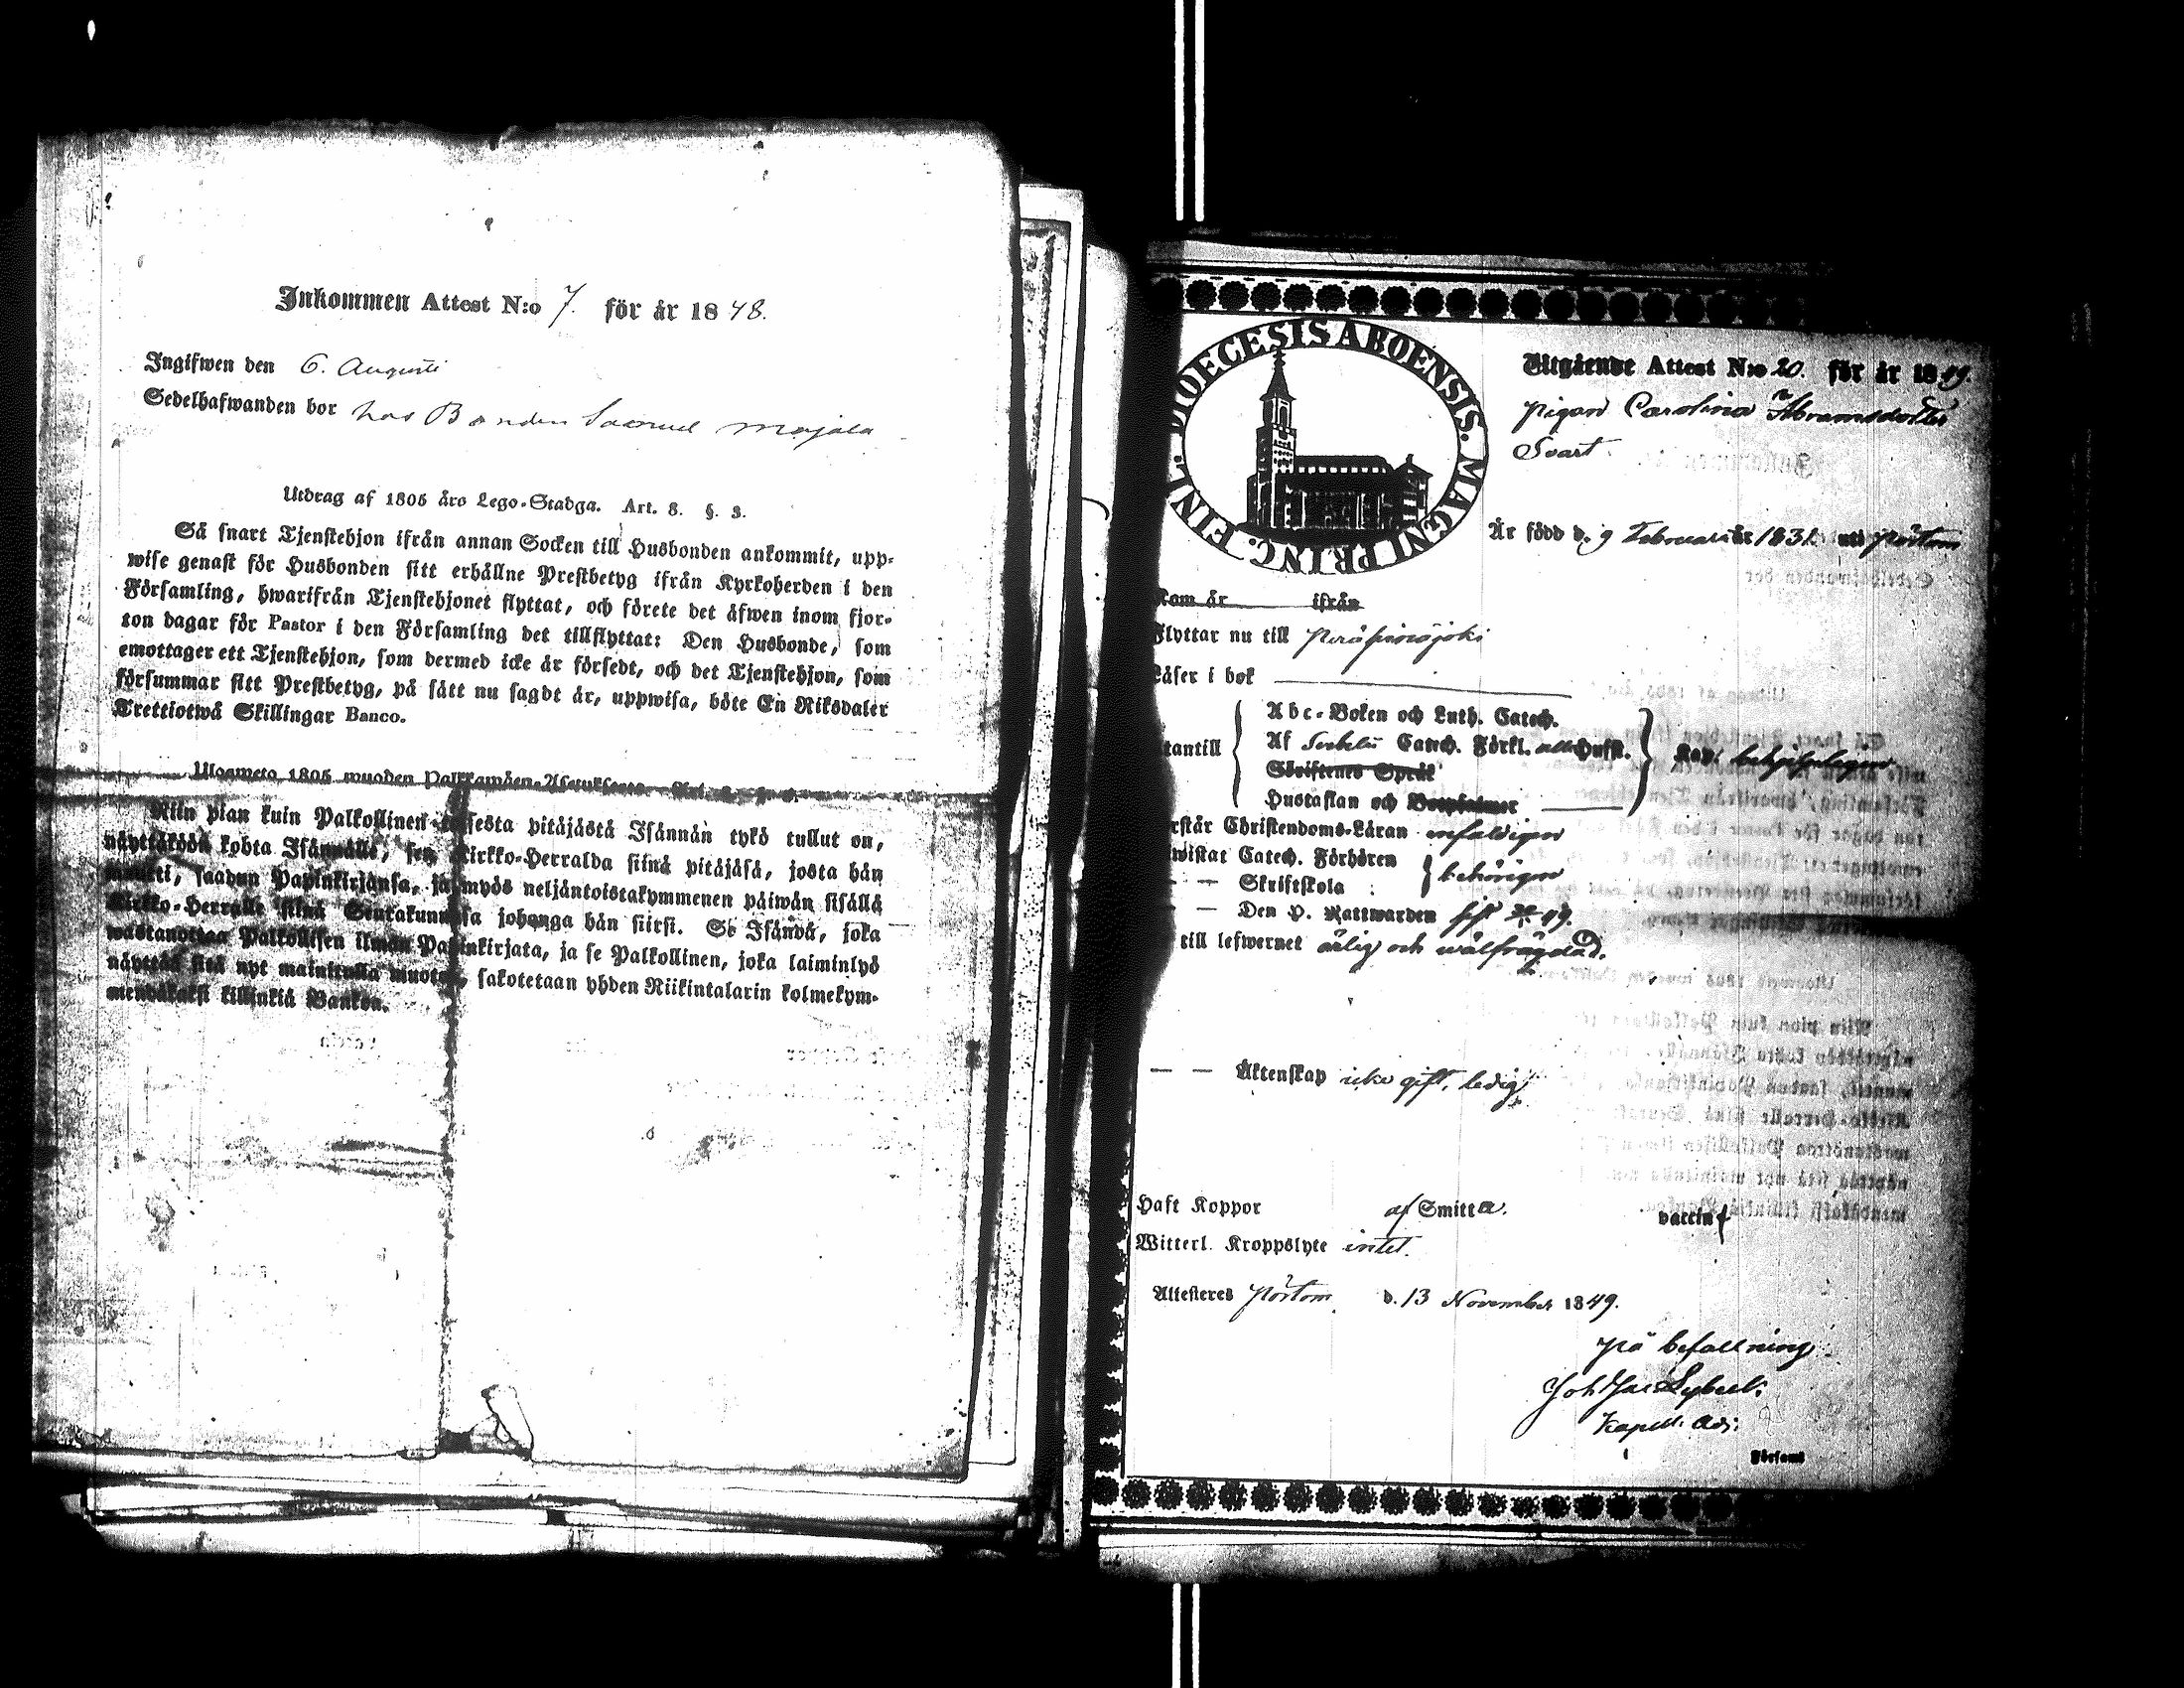 Inkommen Attest N:o 7. för år 1848.
Ingifwen den 6. Augusti
Sedelhafwanden bor hos Bonden Samuel Majala
Utdrag af 1805 års Lego-Stadga. Art. 8. §. 3.
Så snart Tjenstehjon ifrån annan Socken till Husbonden ankommit, upp-
wise genast för Husbonden sitt erhållne Prestbetyg ifrån Kyrkoherden i den
Församling, hwarifrån Tjenstehjonet flyttat, och förete det äfwen inom fjor-
ton dagar för Pastor i den Församling det tillflyttat: Den Husbonde, som
emottager ett Tjenstehjon, som dermed icke är försedt, och det Tjenstehjon, som
försummar sitt Prestbetyg, på sätt nu sagdt är, uppwisa, böte En Riksdaler
Trettiotwå Skillingar Banco.
Ulosweto 1805 wuoden Palkkawäen-Asetuksesta.
Niin pian kuin Palkollinen toisesta pitäjästä Isännän tykö tullut on,
näyttäköön kohta Isännälle, sen Kirkko-Herralda siinä pitäjäsä, josta hän
muutti, saadun Papinkirjansa, ja myös neljäntoistakymmenen päiwän sisällä
Kirkko-Herralle siinä Seurakunnasa johonga hän siirsi. Se Isändä, joka
wastanottaa Palkollisen ilman Papinkirjata, ja se Palkollinen, joka laiminlyö
näyttää sitä nyt mainitulla muotoa, sakotetaan yhden Riikintalarin kolmekym-
mendäkaksi killinkiä Bankoa.
DIOECESIS ABOENSIS. MAGNI PRINC. FINL.
Utgående Attest N:o 20. för år 1849.
Pigan Carolina Abramsdotter
Svart.
Är född d. 9 Februari år 1831. uti Pörtom
Kom år ifrån
Flyttar nu till Peräseinäjoki
Läser i bok
Abc-Boken och Luth. Catech.
Utantill Af Svebelii Catech. Förkl. alla Hufst.
Skriftenes Språk
Hustaflan och Botpsalmer
behjelpligen
Förstår Christendoms-Läran enfaldigen
Bewistat Catech. Förhören
— — Skriftskola behörigen
— — Den H. Nattwarden sist 49.
till lefwernet ärlig och wälfrägdad.
— — Äktenskap icke gift, ledig
Haft Koppor af Smitta. vaccin
Witterl. Kroppslyte intet.
Attesteras Pörtom d. 13 November 1849.
På befallning
Kapell. Adj.
Församl